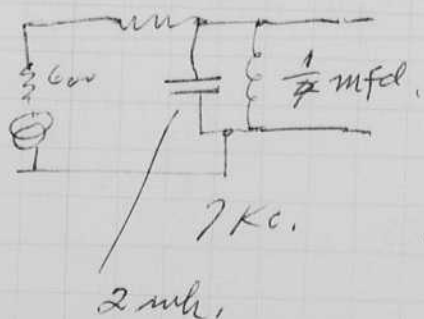 600
1/4 mfd.
7 Kc.
2 mh.